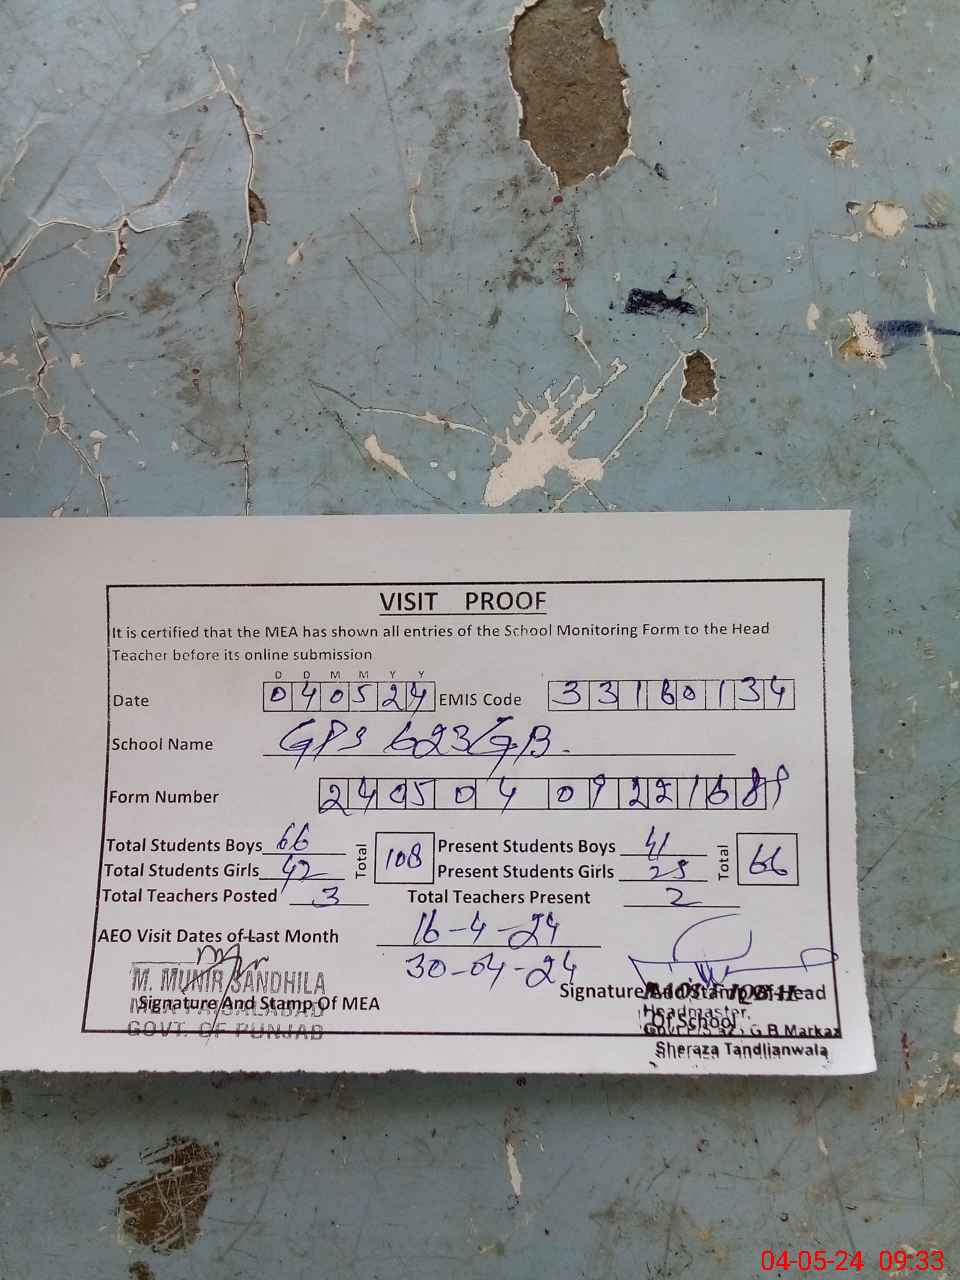 VISIT PROOF
It is certified that the MEA has shown all entries of the School Monitoring Form to the Head
Teacher before its online submission
D D M M Y Y
Date 040524 EMIS Code 33160134
School Name GPS 623/GB.
Form Number 2405 04 09221689
Total Students Boys 66 Total 108 Present Students Boys 41 Total 66
Total Students Girls 42 Present Students Girls 25
Total Teachers Posted 3 Total Teachers Present 2
AEO Visit Dates of Last Month 16-4-24
30-04-24
M. MUNIR SANDHILA
Signature And Stamp Of MEA Signature And Stamp Of Head
FAISALABAD Headmaster,
Of School
GOVT. OF PUNJAB G B Markaz
Sheraza Tandlianwala
04-05-24 09:33